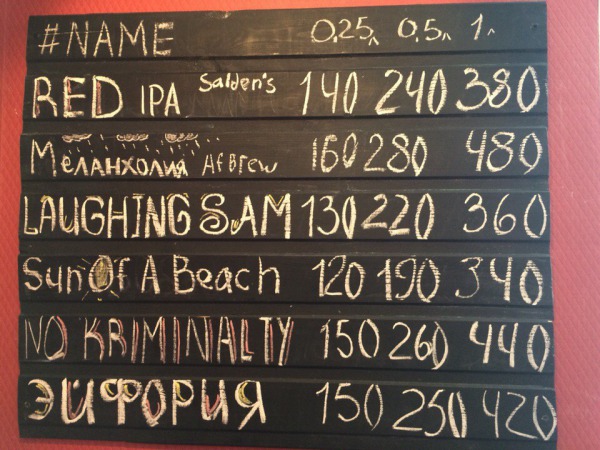 #NAME 0,25л 0,5л 1л
RED IPA Salden's 140 240 380
Меланхолия AFBrew 160 280 480
LAUGHING SAM 130 220 360
Sun Of A Beach 120 190 340
NO KRIMINALTY 150 260 440
ЭЙФОРИЯ 150 250 420